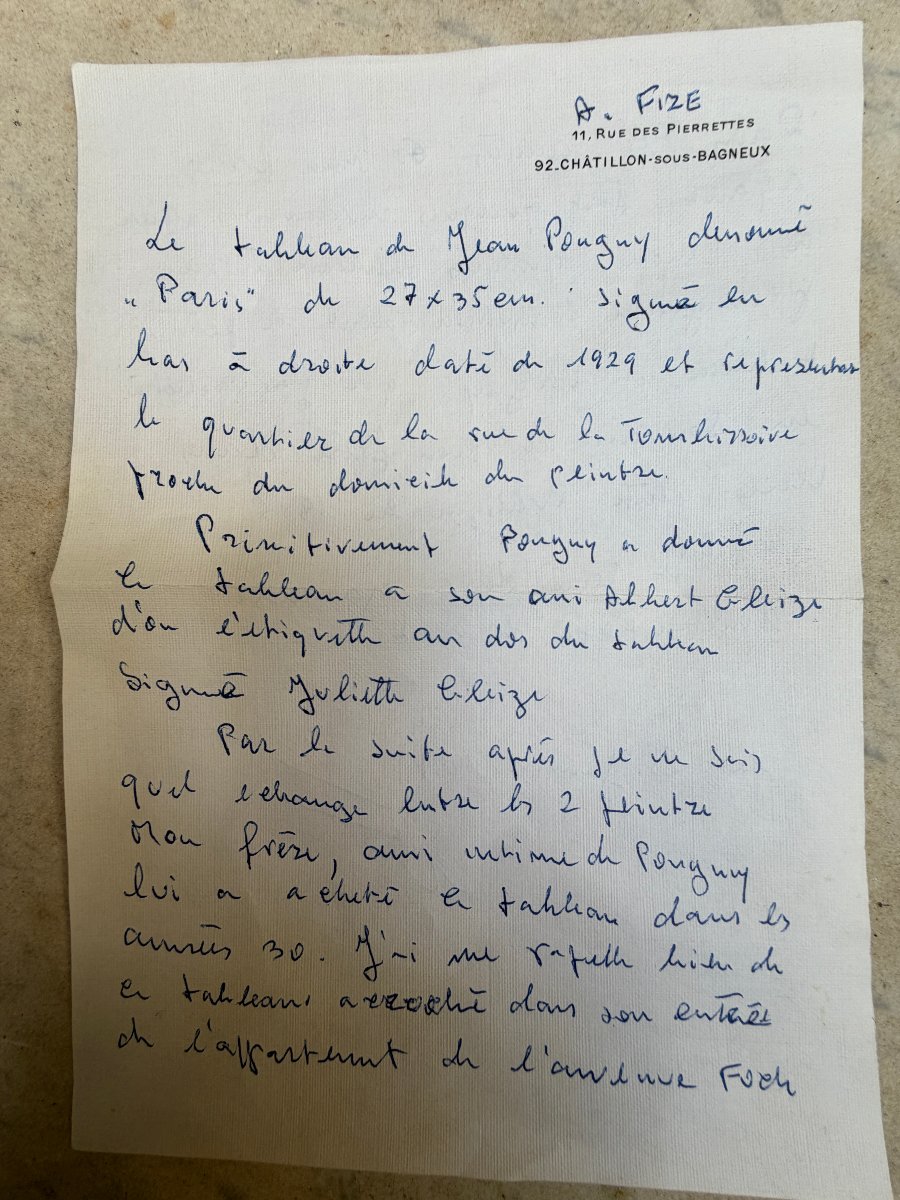 A. FIZE
11, RUE DES PIERRETTES
92_CHÂTILLON-SOUS-BAGNEUX
Le tableau de Jean Pougny denommé
"Paris" de 27x35 cm. Signé en
bas à droite daté de 1929 et representant
le quartier de la rue de la Tombissoire
proche du domicile du peintre.
Primitivement Pougny a donné
le tableau a son ami Albert Gleize
d'ou l'etiquette au dos du tableau
Signé Juliette Gleize
Par la suite après je ne sais
quel echange entre les 2 peintre
Mon frère, ami intime de Pougny
lui a acheté ce tableau dans les
années 30. J'ai me rapelle bien de
ce tableau accroché dans son entrée
de l'appartemt de l'avenue Foch